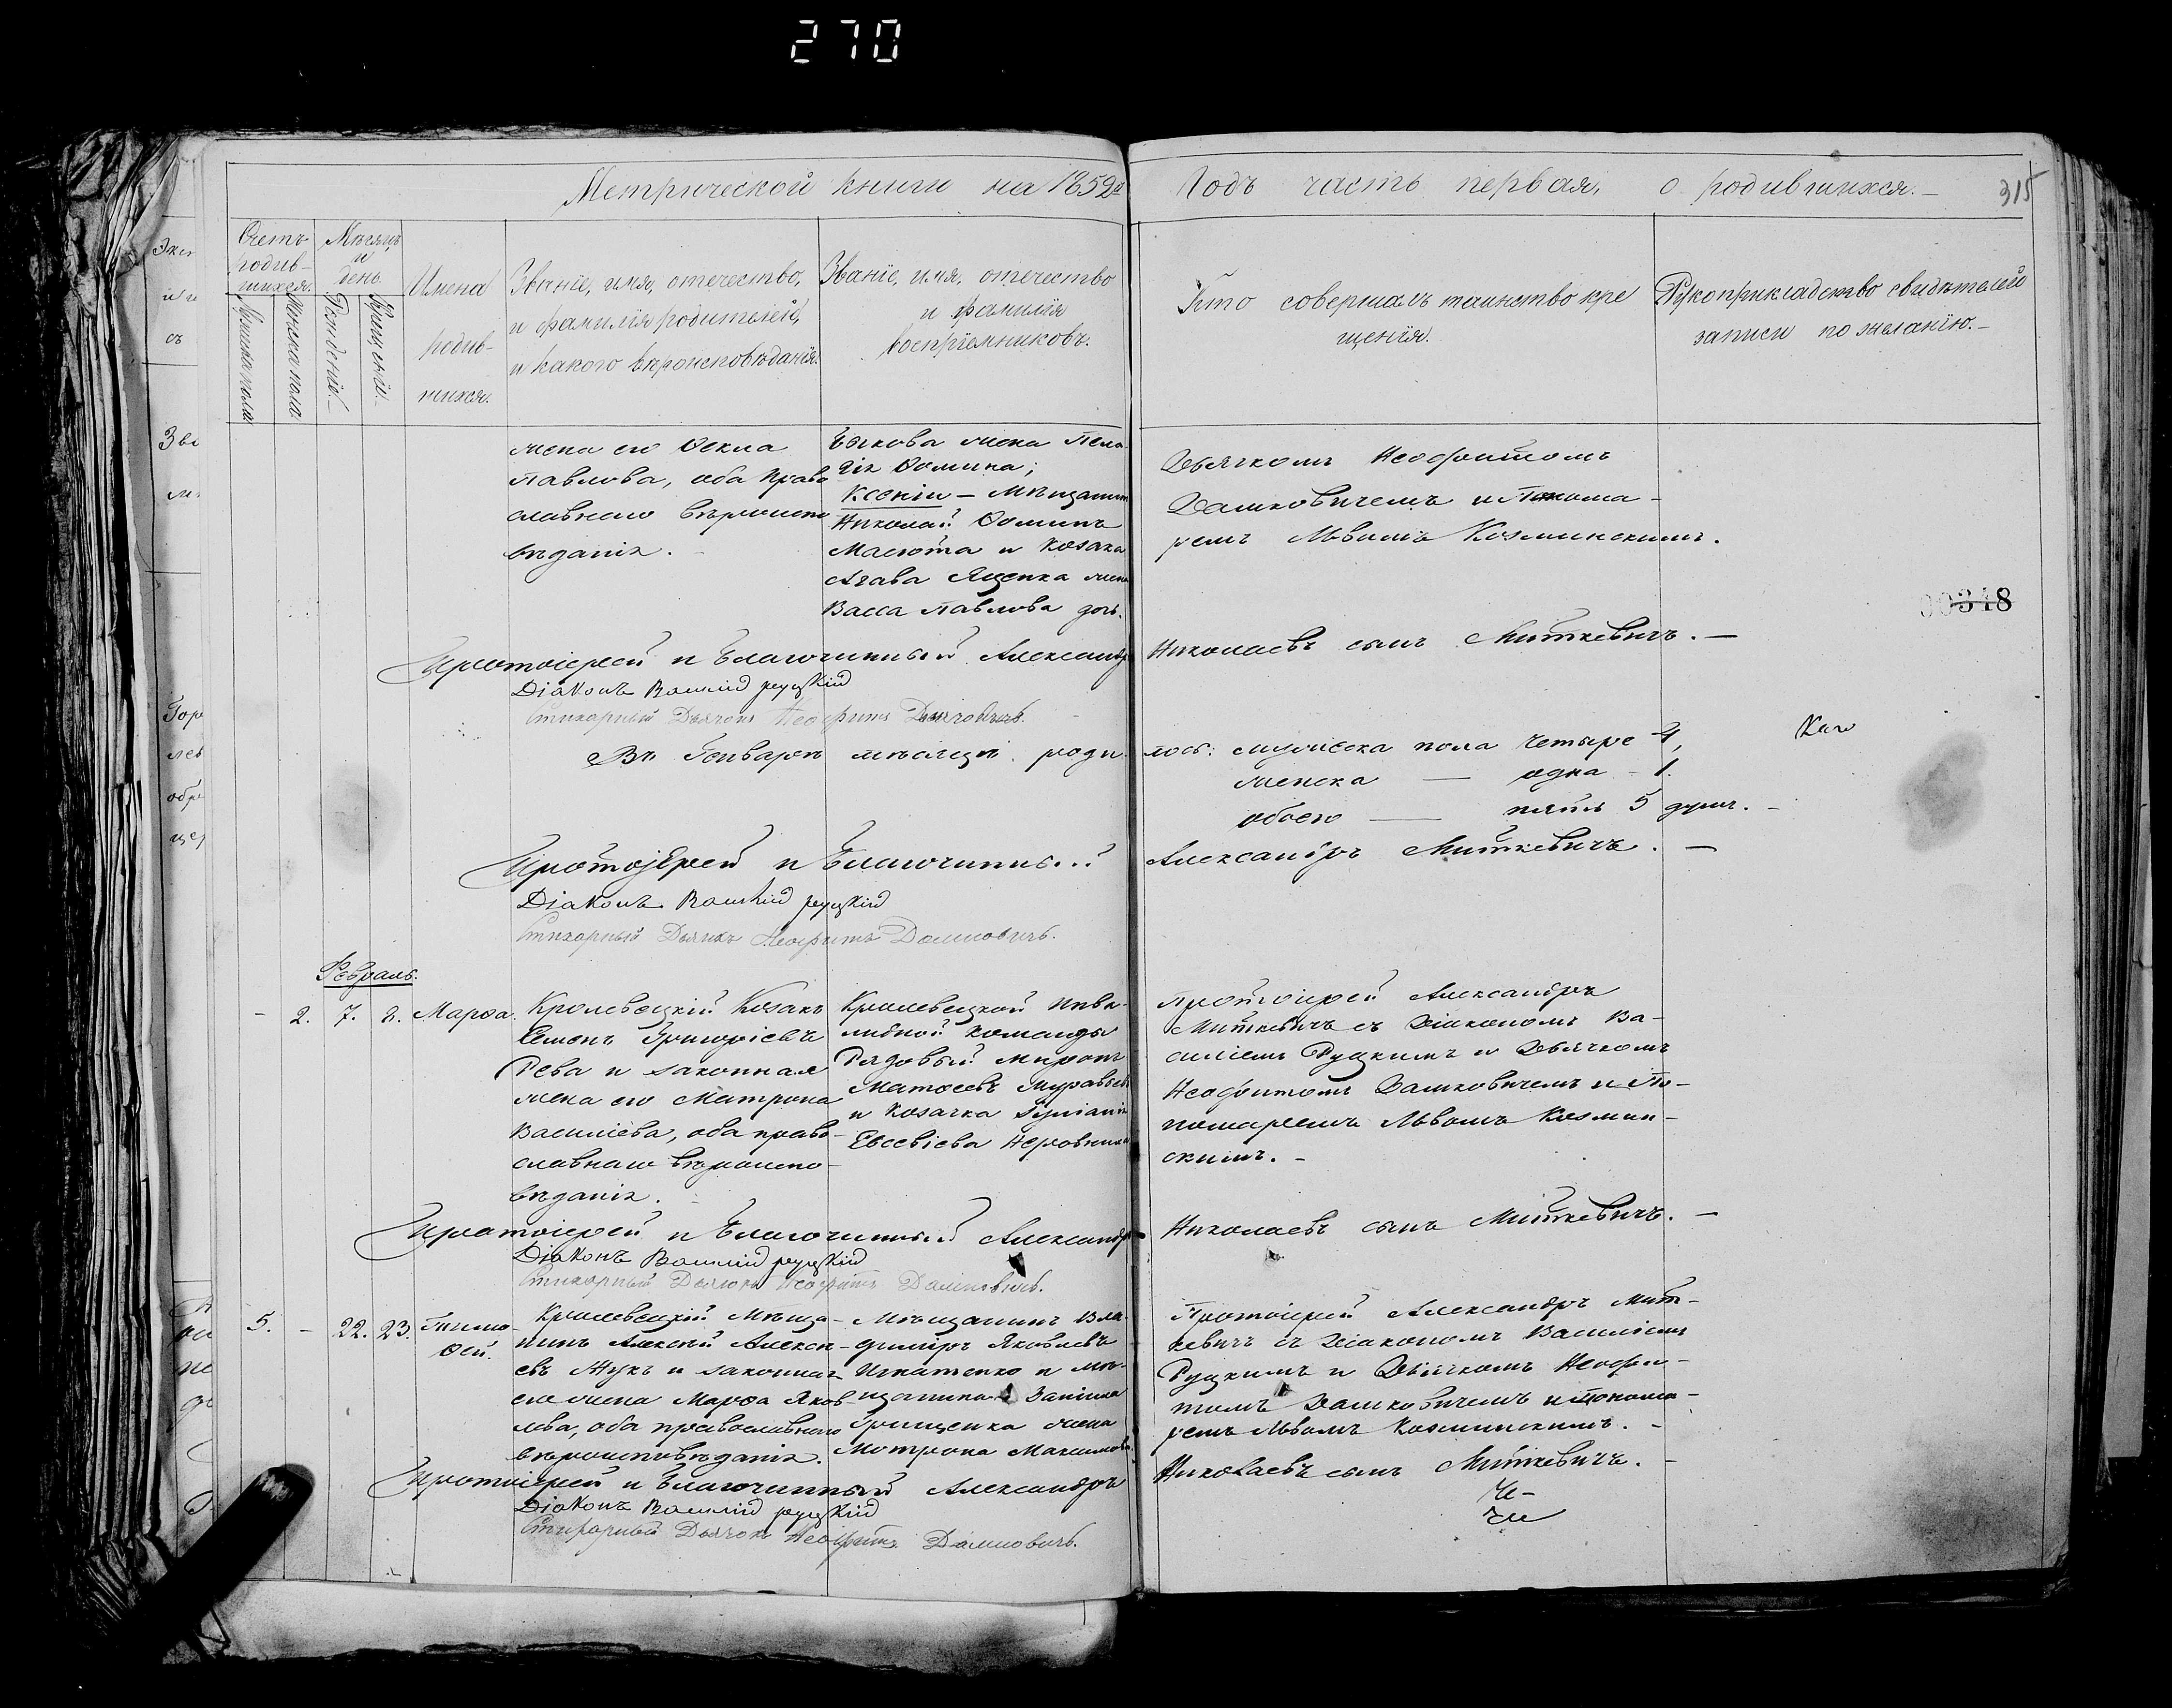 270
Метрической книги на 1852й Годъ часть первая, о родившихся.
315
Счетъ родив-
шихся.
Мужска пола
Женска пола.
Мѣсяцъ
и
день
Рожденіе.
Крещенія.
Имена
родив-
шихся.
Званіе, имя, отечество,
и фамилія родителей,
и какого вѣроисповѣданія.
Званіе, имя, отечество
и фамилія
воспріемниковъ.
Кто совершалъ таинство кре
щенія.
Рукоприкладство свидѣтелей
записи по желанію.
жена его Ѳекла
Павлова, оба Право
славнаго вѣроиспо
вѣданія.
жена Пела
гія Ѳомина;
Ксеніи - Мѣщанинъ
Николай Ѳоминъ
Масюта и Козака
Ященка жена
Васса Павлова дочь.
Дьячкомъ Неофитомъ
Дашковичемъ и Понома-
ремъ Львомъ Козминскимъ.
00348
Протоіерей и Благочинный Александръ Николаевъ сынъ Миткевичъ.
Діаконъ Василій Руцкій
Стихарный Дьячокъ Неофитъ Дашковичъ.
Въ Генварѣ мѣсяцѣ родилось: мужеска пола четыре 4,
женска — одна - 1.
обоего — пять 5 душъ.
Протоіерей и Благочинный Александръ Миткевичъ.
Діаконъ Василій Руцкій
Стихарный Дьячокъ Неофитъ Дашковичъ.
Февраль.
- 2. 7. 8. Марѳа.
Кролевецкій Козакъ
Семенъ Григоріевъ
Рева и законная
жена его Матрона
Василіева, оба право-
славнаго вѣроиспо-
вѣданія.
Кролевецкой Инва-
лидной команды
Рядовый Миронъ
Матѳеевъ Муравьевъ
и Козачка
Евсевіева
Протоіерей Александръ
Миткевичъ съ Діакономъ Ва-
силіемъ Руцкимъ и Дьячкомъ
Неофитомъ Дашковичемъ и По-
номаремъ Львомъ Козмин-
скимъ.
Протоіерей и Благочинный Александръ Николаевъ сынъ Миткевичъ.
Діаконъ Василій Руцкій
Стихарный Дьячокъ Неофитъ Дашковичъ.
5. - 22. 23. Тимо-
ѳей.
Кролевецкій Мѣща-
нинъ Алексѣй Алексѣ-
евъ Жукъ и законная
его жена Марѳа Яков-
лева, оба православнаго
вѣроисповѣданія.
Мѣщанинъ Вла-
диміръ Яковлевъ
Игнатенко и мѣ-
щанина Даніила
Грищенка жена
Мотрона Максимова.
Протоіерей Александръ Мит-
кевичъ съ Діакономъ Василіемъ
Руцкимъ и Дьячкомъ Неофи-
томъ Дашковичемъ и Понома-
ремъ Львомъ Козминскимъ.
Протоіерей и Благочинный Александръ Николаевъ сынъ Миткевичъ.
Діаконъ Василій Руцкій
Стихарный Дьячокъ Неофитъ Дашковичъ.